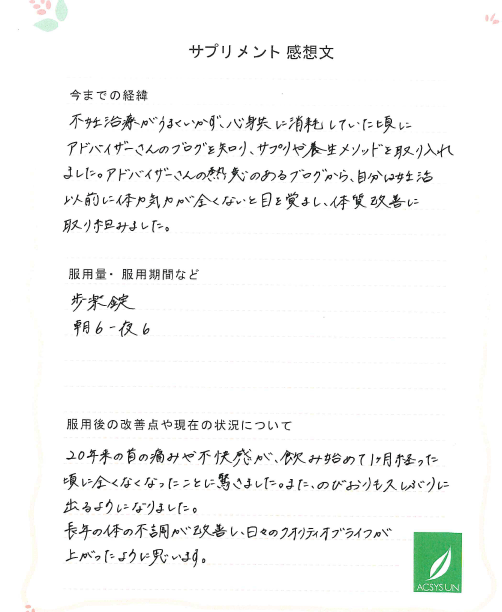 サプリメント 感想文
今までの経緯
不妊治療がうまくいかず、心身共に消耗していた頃に
アドバイザーさんのブログを知り、サプリや養生メソッドを取り入れ
ました。アドバイザーさんの熱意のあるブログから、自分は妊活
以前に体力気力が全くないと目を覚まし、体質改善に
取り組みました。
服用量・服用期間など
歩楽錠
朝6-夜6
服用後の改善点や現在の状況について
20年来の首の痛みや不快感が、飲み始めて1ヶ月経った
頃に全くなくなったことに驚きました。また、のびおりもスムーズに
出るようになりました。
長年の体の不調が改善し、日々のクオリティオブライフが
上がったように思います。
ACSYSUN